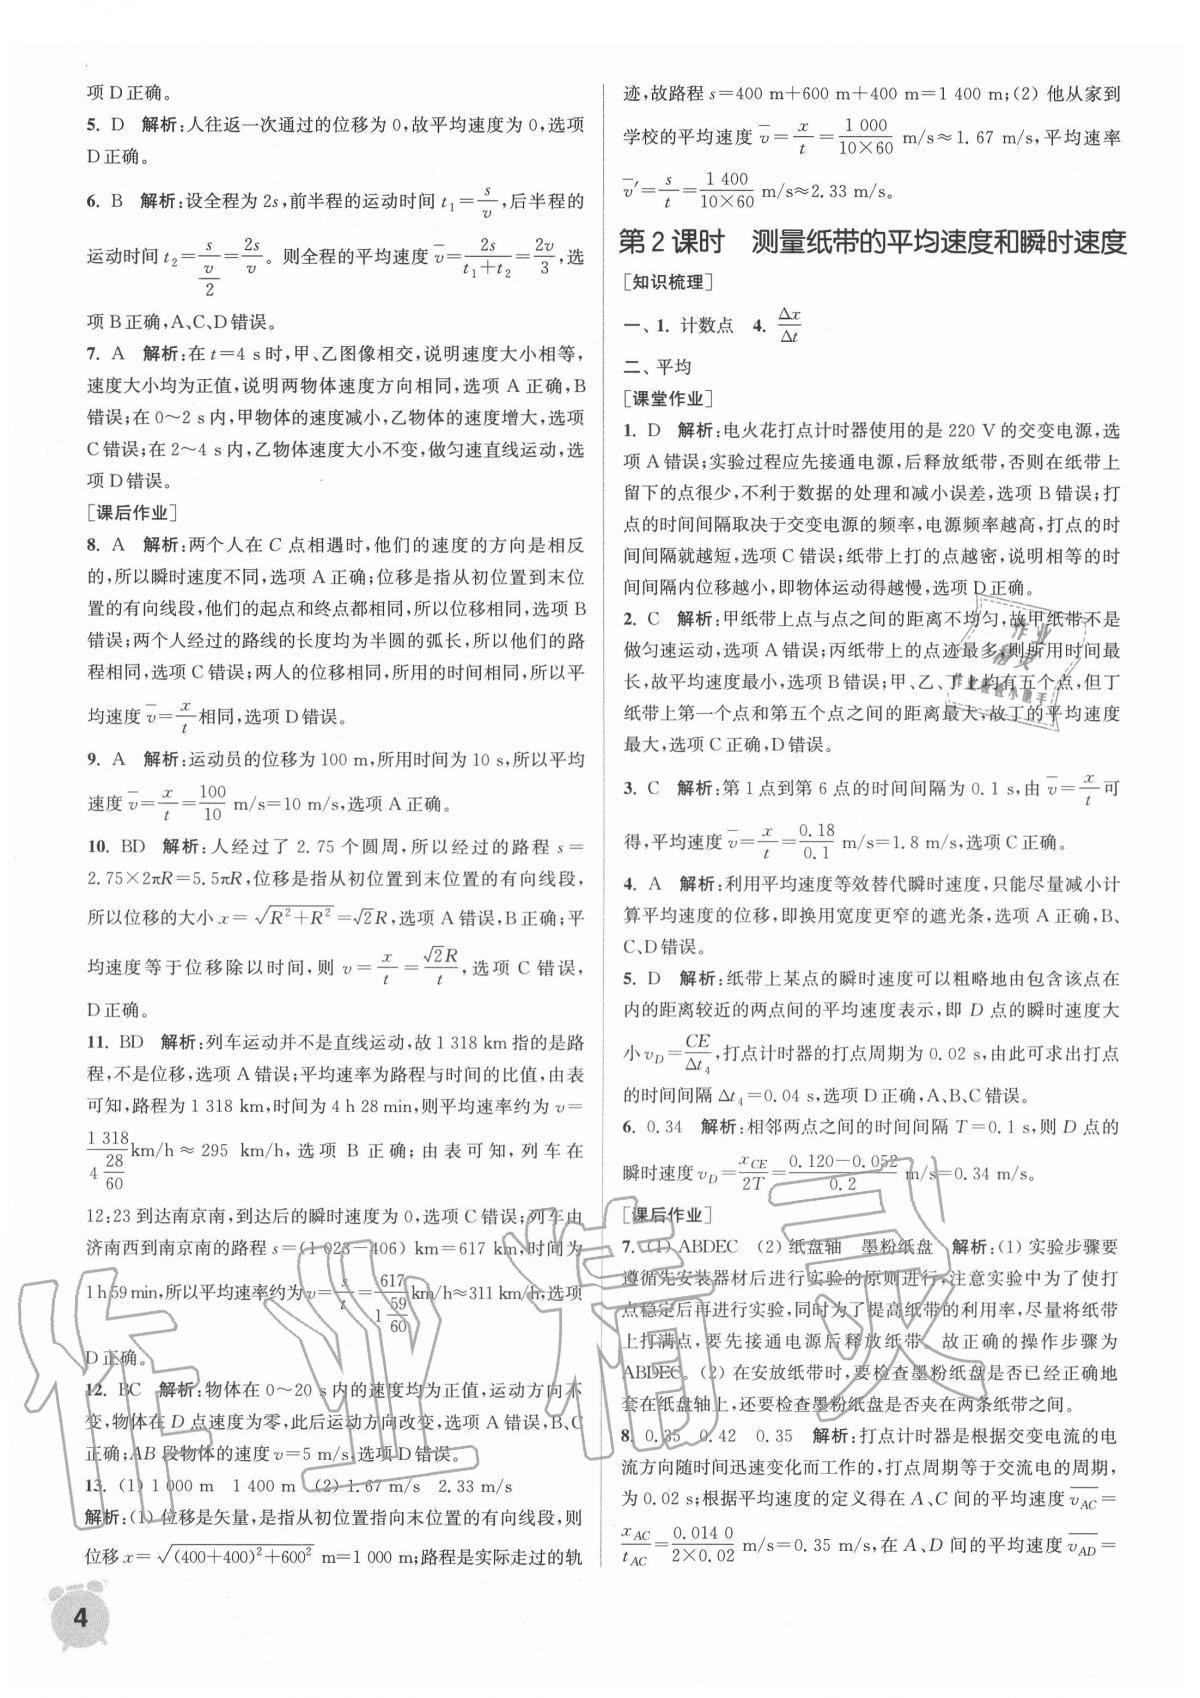 项 D 正确。
5. D 解析:人往返一次通过的位移为 0,故平均速度为 0,选项
D 正确。
6. B 解析:设全程为 2s,前半程的运动时间 t₁=s/v,后半程的
运动时间 t₂=s/(v/2)=2s/v。则全程的平均速度 v̄=2s/(t₁+t₂)=2v/3,选
项 B 正确,A、C、D 错误。
7. A 解析:在 t=4 s 时,甲、乙图像相交,说明速度大小相等,
速度大小均为正值,说明两物体速度方向相同,选项 A 正确,B
错误;在 0~2 s 内,甲物体的速度减小,乙物体的速度增大,选项
C 错误;在 2~4 s 内,乙物体速度大小不变,做匀速直线运动,选
项 D 错误。
[课后作业]
8. A 解析:两个人在 C 点相遇时,他们的速度的方向是相反
的,所以瞬时速度不同,选项 A 正确;位移是指从初位置到末位
置的有向线段,他们的起点和终点都相同,所以位移相同,选项 B
错误;两个人经过的路线的长度均为半圆的弧长,所以他们的路
程相同,选项 C 错误;两人的位移相同,所用的时间相同,所以平
均速度 v̄=x/t 相同,选项 D 错误。
9. A 解析:运动员的位移为 100 m,所用时间为 10 s,所以平均
速度 v̄=x/t=100/10 m/s=10 m/s,选项 A 正确。
10. BD 解析:人经过了 2.75 个圆周,所以经过的路程 s=
2.75×2πR=5.5πR,位移是指从初位置到末位置的有向线段,
所以位移的大小 x=√(R²+R²)=√2R,选项 A 错误,B 正确;平
均速度等于位移除以时间,则 v=x/t=√2R/t,选项 C 错误,
D 正确。
11. BD 解析:列车运动并不是直线运动,故 1 318 km 指的是路
程,不是位移,选项 A 错误;平均速率为路程与时间的比值,由表
可知,路程为 1 318 km,时间为 4 h 28 min,则平均速率约为 v=
1 318/(4 28/60) km/h≈295 km/h,选项 B 正确;由表可知,列车在
12:23 到达南京南,到达后的瞬时速度为 0,选项 C 错误;列车由
济南西到南京南的路程 s=(1 023-406) km=617 km,时间为
1 h 59 min,所以平均速率约为 v=s/t=617/(1 59/60) km/h≈311 km/h,选项
D 正确。
12. BC 解析:物体在 0~20 s 内的速度均为正值,运动方向不
变,物体在 D 点速度为零,此后运动方向改变,选项 A 错误,B、C
正确;AB 段物体的速度 v=5 m/s,选项 D 错误。
13. (1) 1 000 m 1 400 m (2) 1.67 m/s 2.33 m/s
解析:(1) 位移是矢量,是指从初位置指向末位置的有向线段,则
位移 x=√((400+400)²+600²) m=1 000 m;路程是实际走过的轨
4
迹,故路程 s=400 m+600 m+400 m=1 400 m;(2) 他从家到
学校的平均速度 v̄=x/t=1 000/(10×60) m/s≈1.67 m/s,平均速率
v̄′=s/t=1 400/(10×60) m/s≈2.33 m/s。
第 2 课时 测量纸带的平均速度和瞬时速度
[知识梳理]
一、1. 计数点 4. Δx/Δt
二、平均
[课堂作业]
1. D 解析:电火花打点计时器使用的是 220 V 的交变电源,选
项 A 错误;实验过程应先接通电源,后释放纸带,否则在纸带上
留下的点很少,不利于数据的处理和减小误差,选项 B 错误;打
点的时间间隔取决于交变电源的频率,电源频率越高,打点的时
间间隔就越短,选项 C 错误;纸带上打的点越密,说明相等的时
间间隔内位移越小,即物体运动得越慢,选项 D 正确。
2. C 解析:甲纸带上点与点之间的距离不均匀,故甲纸带不是
做匀速运动,选项 A 错误;丙纸带上的点迹最多,则所用时间最
长,故平均速度最小,选项 B 错误;甲、乙、丁上均有五个点,但丁
纸带上第一个点和第五个点之间的距离最大,故丁的平均速度
最大,选项 C 正确,D 错误。
3. C 解析:第 1 点到第 6 点的时间间隔为 0.1 s,由 v̄=x/t 可
得,平均速度 v̄=x/t=0.18/0.1 m/s=1.8 m/s,选项 C 正确。
4. A 解析:利用平均速度等效替代瞬时速度,只能尽量减小计
算平均速度的位移,即换用宽度更窄的遮光条,选项 A 正确,B、
C、D 错误。
5. D 解析:纸带上某点的瞬时速度可以粗略地由包含该点在
内的距离较近的两点间的平均速度表示,即 D 点的瞬时速度大
小 v_D=CE/Δt₄,打点计时器的打点周期为 0.02 s,由此可求出打点
的时间间隔 Δt₄=0.04 s,选项 D 正确,A、B、C 错误。
6. 0.34 解析:相邻两点之间的时间间隔 T=0.1 s,则 D 点的
瞬时速度 v_D=x_CE/2T=(0.120-0.052)/0.2 m/s=0.34 m/s。
[课后作业]
7. (1) ABDEC (2) 纸盘轴 墨粉纸盘 解析:(1) 实验步骤要
遵循先安装器材后进行实验的原则进行,注意实验中为了使打
点稳定后再进行实验,同时为了提高纸带的利用率,尽量将纸带
上打满点,要先接通电源后释放纸带。故正确的操作步骤为
ABDEC。(2) 在安放纸带时,要检查墨粉纸盘是否已经正确地
套在纸盘轴上,还要检查墨粉纸盘是否夹在两条纸带之间。
8. 0.35 0.42 0.35 解析:打点计时器是根据交变电流的电
流方向随时间迅速变化而工作的,打点周期等于交流电的周期,
为 0.02 s;根据平均速度的定义得在 A、C 间的平均速度 v̄_AC=
x_AC/t_AC=0.014 0/(2×0.02) m/s=0.35 m/s,在 A、D 间的平均速度 v̄_AD=
作业
精灵
作业精灵